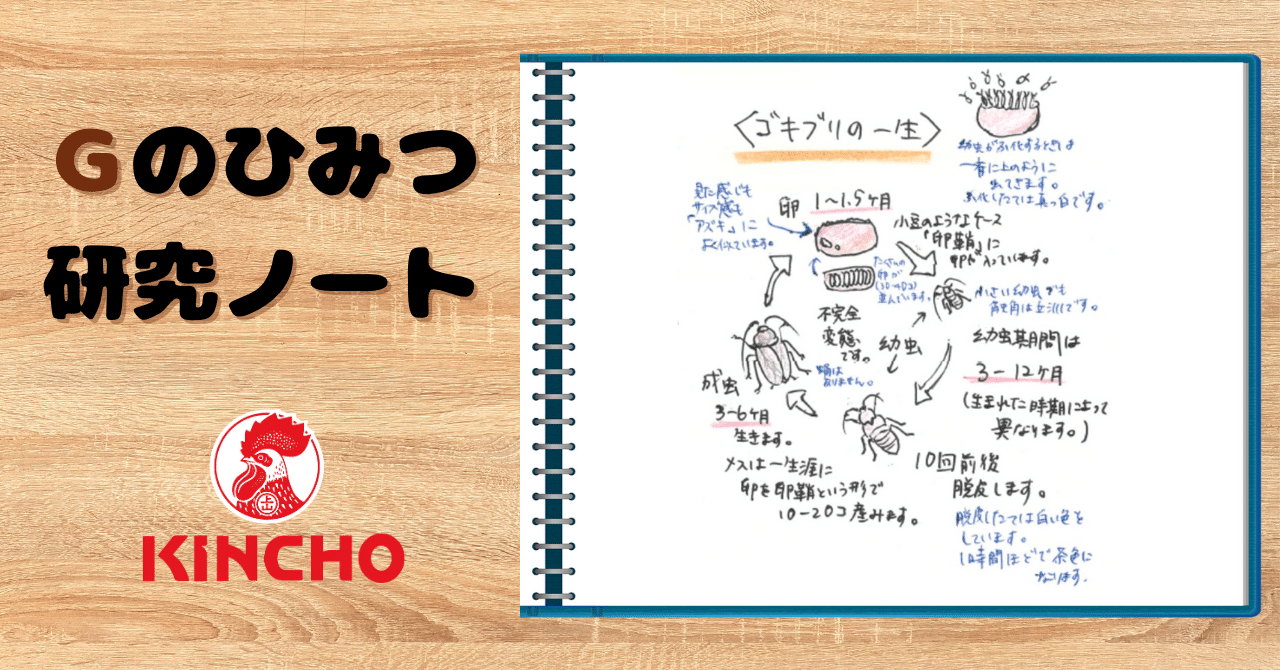 Gのひみつ
研究ノート
KINCHO
〈ゴキブリの一生〉
幼虫がふ化するときは
一斉に上のように
出てきます。
ふ化したては真っ白です。
見た感じも
サイズ感も
「アズキ」に
よく似ています。
卵 1〜1.5ヶ月
小豆のようなケース
「卵鞘」に
卵が入っています。
たくさんの
卵が
(30-40コ)
並んでいます。
小さい幼虫でも
触角は立派です。
不完全
変態
です。
蛹は
ありません。
幼虫
幼虫期間は
3-12ヶ月
(生まれた時期によって
異なります。)
成虫
3-6ヶ月
生きます。
メスは一生涯に
卵を卵鞘という形で
10-20コ産みます。
10回前後
脱皮します。
脱皮したては白い色を
しています。
1時間ほどで茶色に
なります。